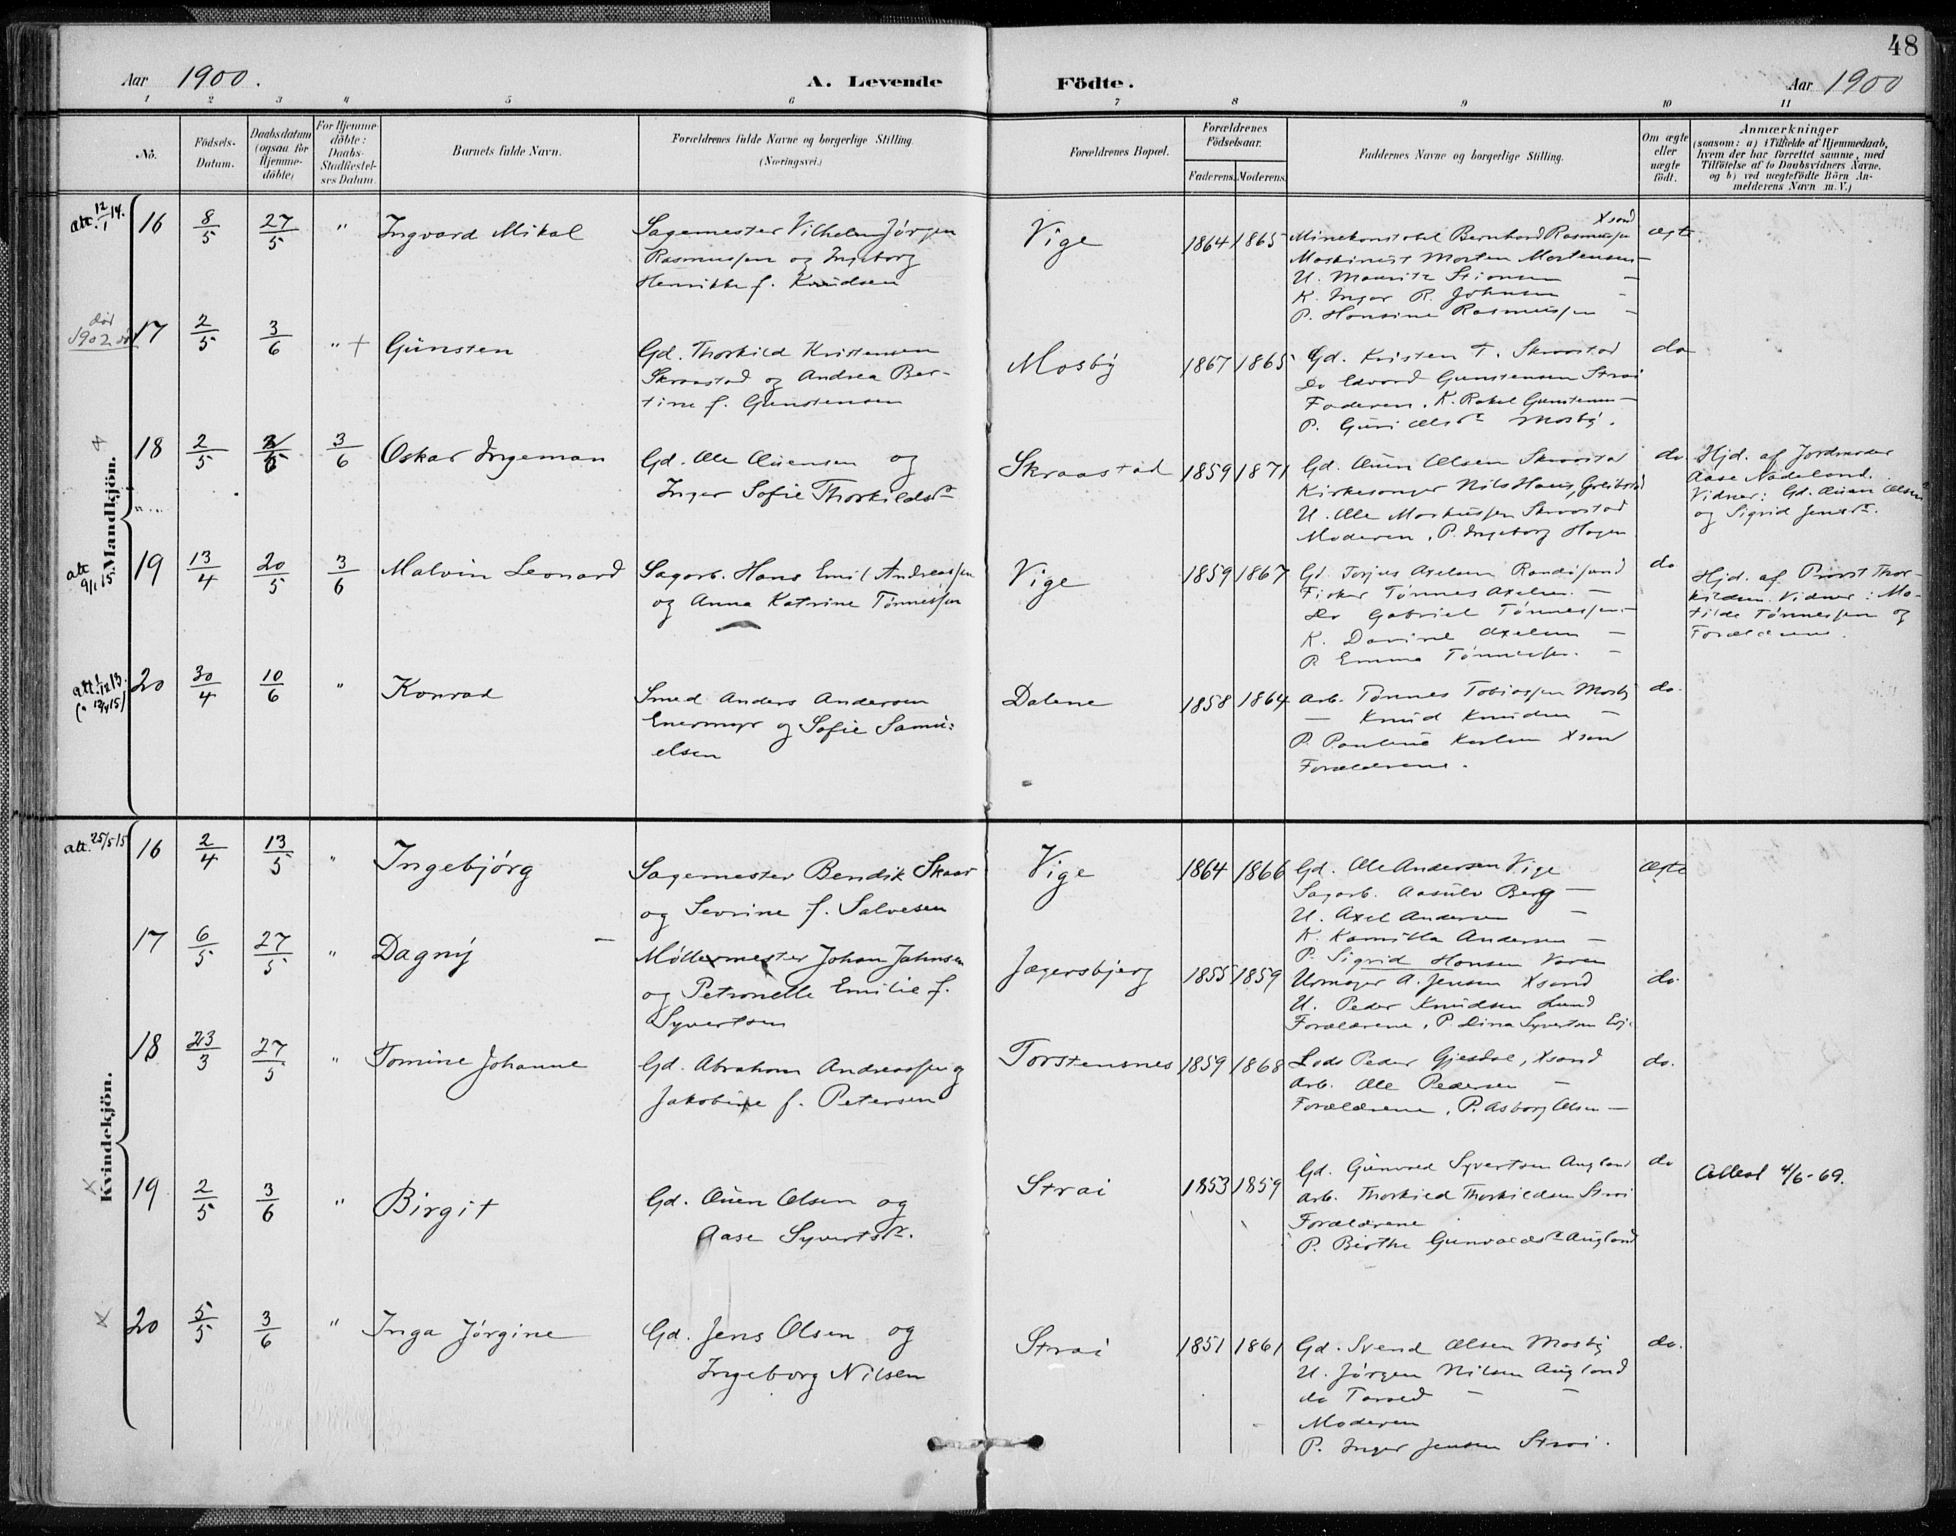 48
Aar 1900.
A. Levende Födte.
Aar 1900
1 2 3 4 5 6 7 8 9 10 11
No.
Födsels-Datum.
Daabsdatum (ogsaa for Hjemme-döbte)
For Hjemme-döbte: Daabs-Stadfæstelses Datum.
Barnets fulde Navn.
Forældrenes fulde Navne og borgerlige Stilling. (Næringsvei.)
Forældrenes Bopæl.
Forældrenes Födselsaar.
Faderens. Moderens.
Faddernes Navne og borgerlige Stilling.
Om ægte eller uægte födt.
Anmærkninger
(saasom: a) i Tilfælde af Hjemmedaab, hvem der har forrettet samme, med Tilföielse af to Daabsvidners Navne, og b) ved uægtefödte Börn Anmelderens Navn m. V.)
Mandkjön.
att. 12/1 14.
16 8/5 27/5 " Ingvard Mikal
Sagemester Vilhelm Jørgen
Rasmussen og Ingeborg
Henrikke f. Knudsen
Vige 1864 1865
Xsand
Minekonstabel Bernhard Rasmussen
Maskinist Morten Mortensen —
U. Mauritz
K. Inger R. Johnsen —
P. Hansine Rasmussen —
ægte
død
1902
17 2/5 3/6 " + Günsten
Gd. Thorkild Kristensen
Skraastad og Andrea Ber-
tine f. Gunstensen
Mosby 1867 1865
Gd. Kristen T. Skraastad
Do Edvard Gunstensen Strai
Faderen, K. Rakel Gunstensen —
P. Guri Olsdr Mosby.
do
18 2/5 3/6 3/6 Oskar Ingeman
Gd. Ole Ouensen og
Inger Sofie Thorkildsdr
Skraastad 1859 1871
Gd. Ouen Olsen Skraastad
Kirkesanger Nils Haus, Greibstad
U. Ole Markussen Skraastad
Moderen, P. Ingeborg Hagen
do
Hjd. af Jordmoder
Aase Nådeland.
Vidner: Gd. Ouen Olsen
og Sigrid Jensdr.
att 9/1 15.
19 13/4 20/5 3/6 Malvin Leonard
Sagarb. Hans Emil Andreassen
og Anna Katrine Tønnessen
Vige 1859 1867
Gd. Torjus Axelsen Randøsund
Fisker Tønnes Axelsen —
Do Gabriel Tønnessen —
K. Davine Axelsen —
P. Emma Tønnessen. —
do
Hjd. af Provst Thor-
kildsen. Vidner: Ma-
tilde Tønnessen og
Forældrene.
att. 1/12 13.
20 30/4 10/6 " Konrad
Smed Anders Andersen
Enermyr og Sofie Samu-
elsen
Dalene 1858 1864
Arb. Tønnes Tobiassen Mosby
— Knud Knudsen —
P. Pauline Karlsen Xsand
Forældrene.
do.
Kvindekjön.
att. 25/5 15
16 2/4 13/5 " Ingebjørg
Sagemester Bendik Skaar
og Sevrine f. Salvesen
Vige 1864 1866
Gd. Ole Andersen Vige
Sagarb. Aasulv Berg —
U. Axel Andersen —
K. Kamilla Andersen —
P. Sigrid Hansen
ægte
17 6/5 27/5 " Dagny —
Møllermester Johan Jahnsen
og Petronelle Emilie f.
Syvertsen
Jegersbjerg 1855 1859
Urmager A. Jensen Xsand
U. Peder Knudsen Lund
Forældrene, P. Dina Syvertsen
do.
18 23/3 27/5 " Tomine Johanne
Gd. Abraham Andreassen og
Jakobine f. Petersen
Torstensnes 1859 1868
Lods Peder Gjesdal, Xsand
Arb. Ole Pedersen —
Forældrene, P. Asborg Olsen —
do.
19 2/5 3/6 " Birgit
Gd. Ouen Olsen og
Aase Syvertsdr.
Strai 1853 1859
Gd. Gunvald Syvertsen Augland
Arb. Thorkild Thorkildsen Strai
Forældrene
P. Birthe Gunvaldsdr Augland
do
Attest 4/6-69.
20 5/5 3/6 " Inga Jørgine
Gd. Jens Olsen og
Ingeborg Nilsen
Strai 1851 1861
Gd. Svend Olsen Mosby
U. Jørgen Nilsen Augland
do Tarald — —
Moderen
P. Inger Jensen Strai.
do.